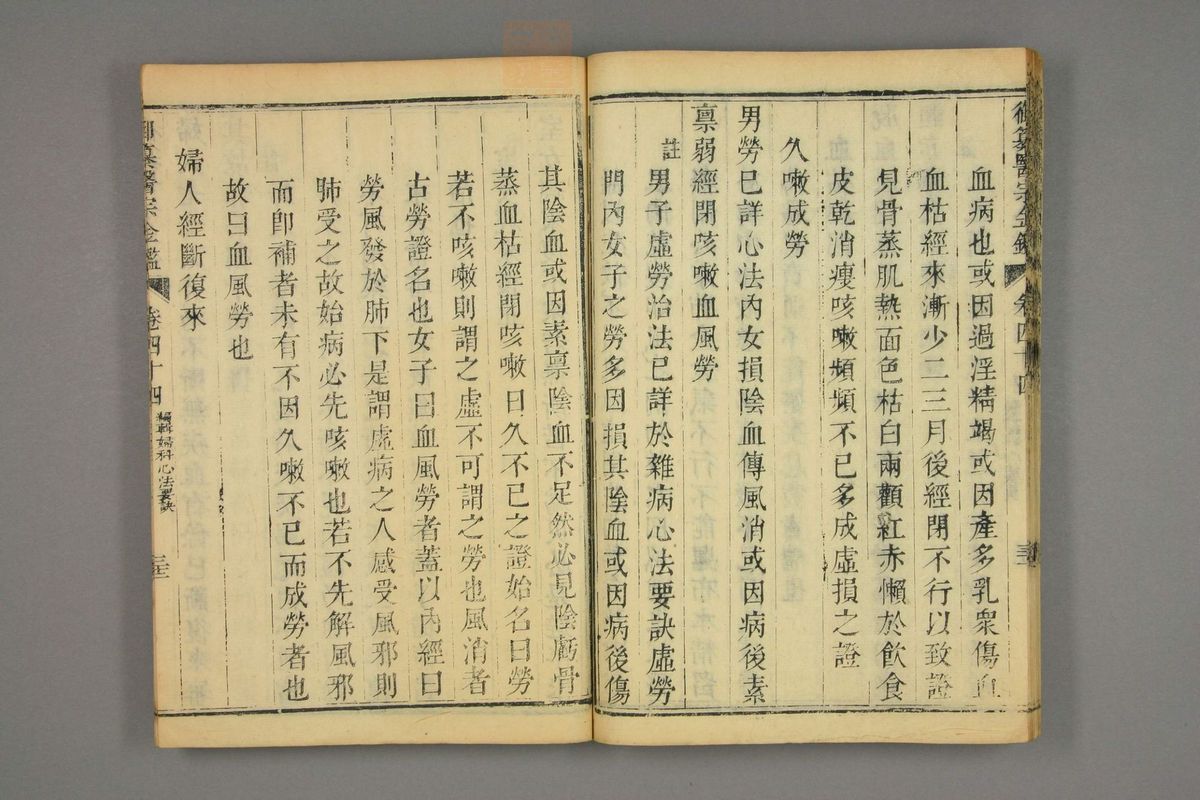 御纂醫宗金鑑 卷四十四
血病也或因過淫精竭或因產多乳衆傷血
血枯經來漸少二三月後經閉不行以致證
見骨蒸肌熱面色枯白兩顴紅赤懶於飲食
皮乾消瘦咳嗽頻頻不已多成虛損之證
久嗽成勞
男勞已詳心法內女損陰血傳風消或因病後素
禀弱經閉咳嗽血風勞
註 男子虛勞治法已詳於雜病心法要訣虛勞
門內女子之勞多因損其陰血或因病後傷
其陰血或因素禀陰血不足然必見陰虧骨
蒸血枯經閉咳嗽日久不已之證始名曰勞
若不咳嗽則謂之虛不可謂之勞也風消者
古勞證名也女子曰血風勞者蓋以內經曰
勞風發於肺下是謂虛病之人感受風邪則
肺受之故始病必先咳嗽也若不先解風邪
而卽補者未有不因久嗽不已而成勞者也
故曰血風勞也
婦人經斷復來
御纂醫宗金鑑 卷四十四 編輯婦科心法要訣